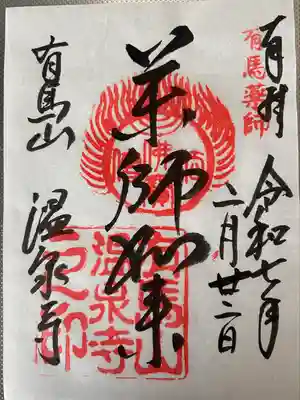 奉拝
有馬薬師
令和七年
二月廿二日
薬師如来
有馬山
温泉寺
有馬山
温泉寺
之印